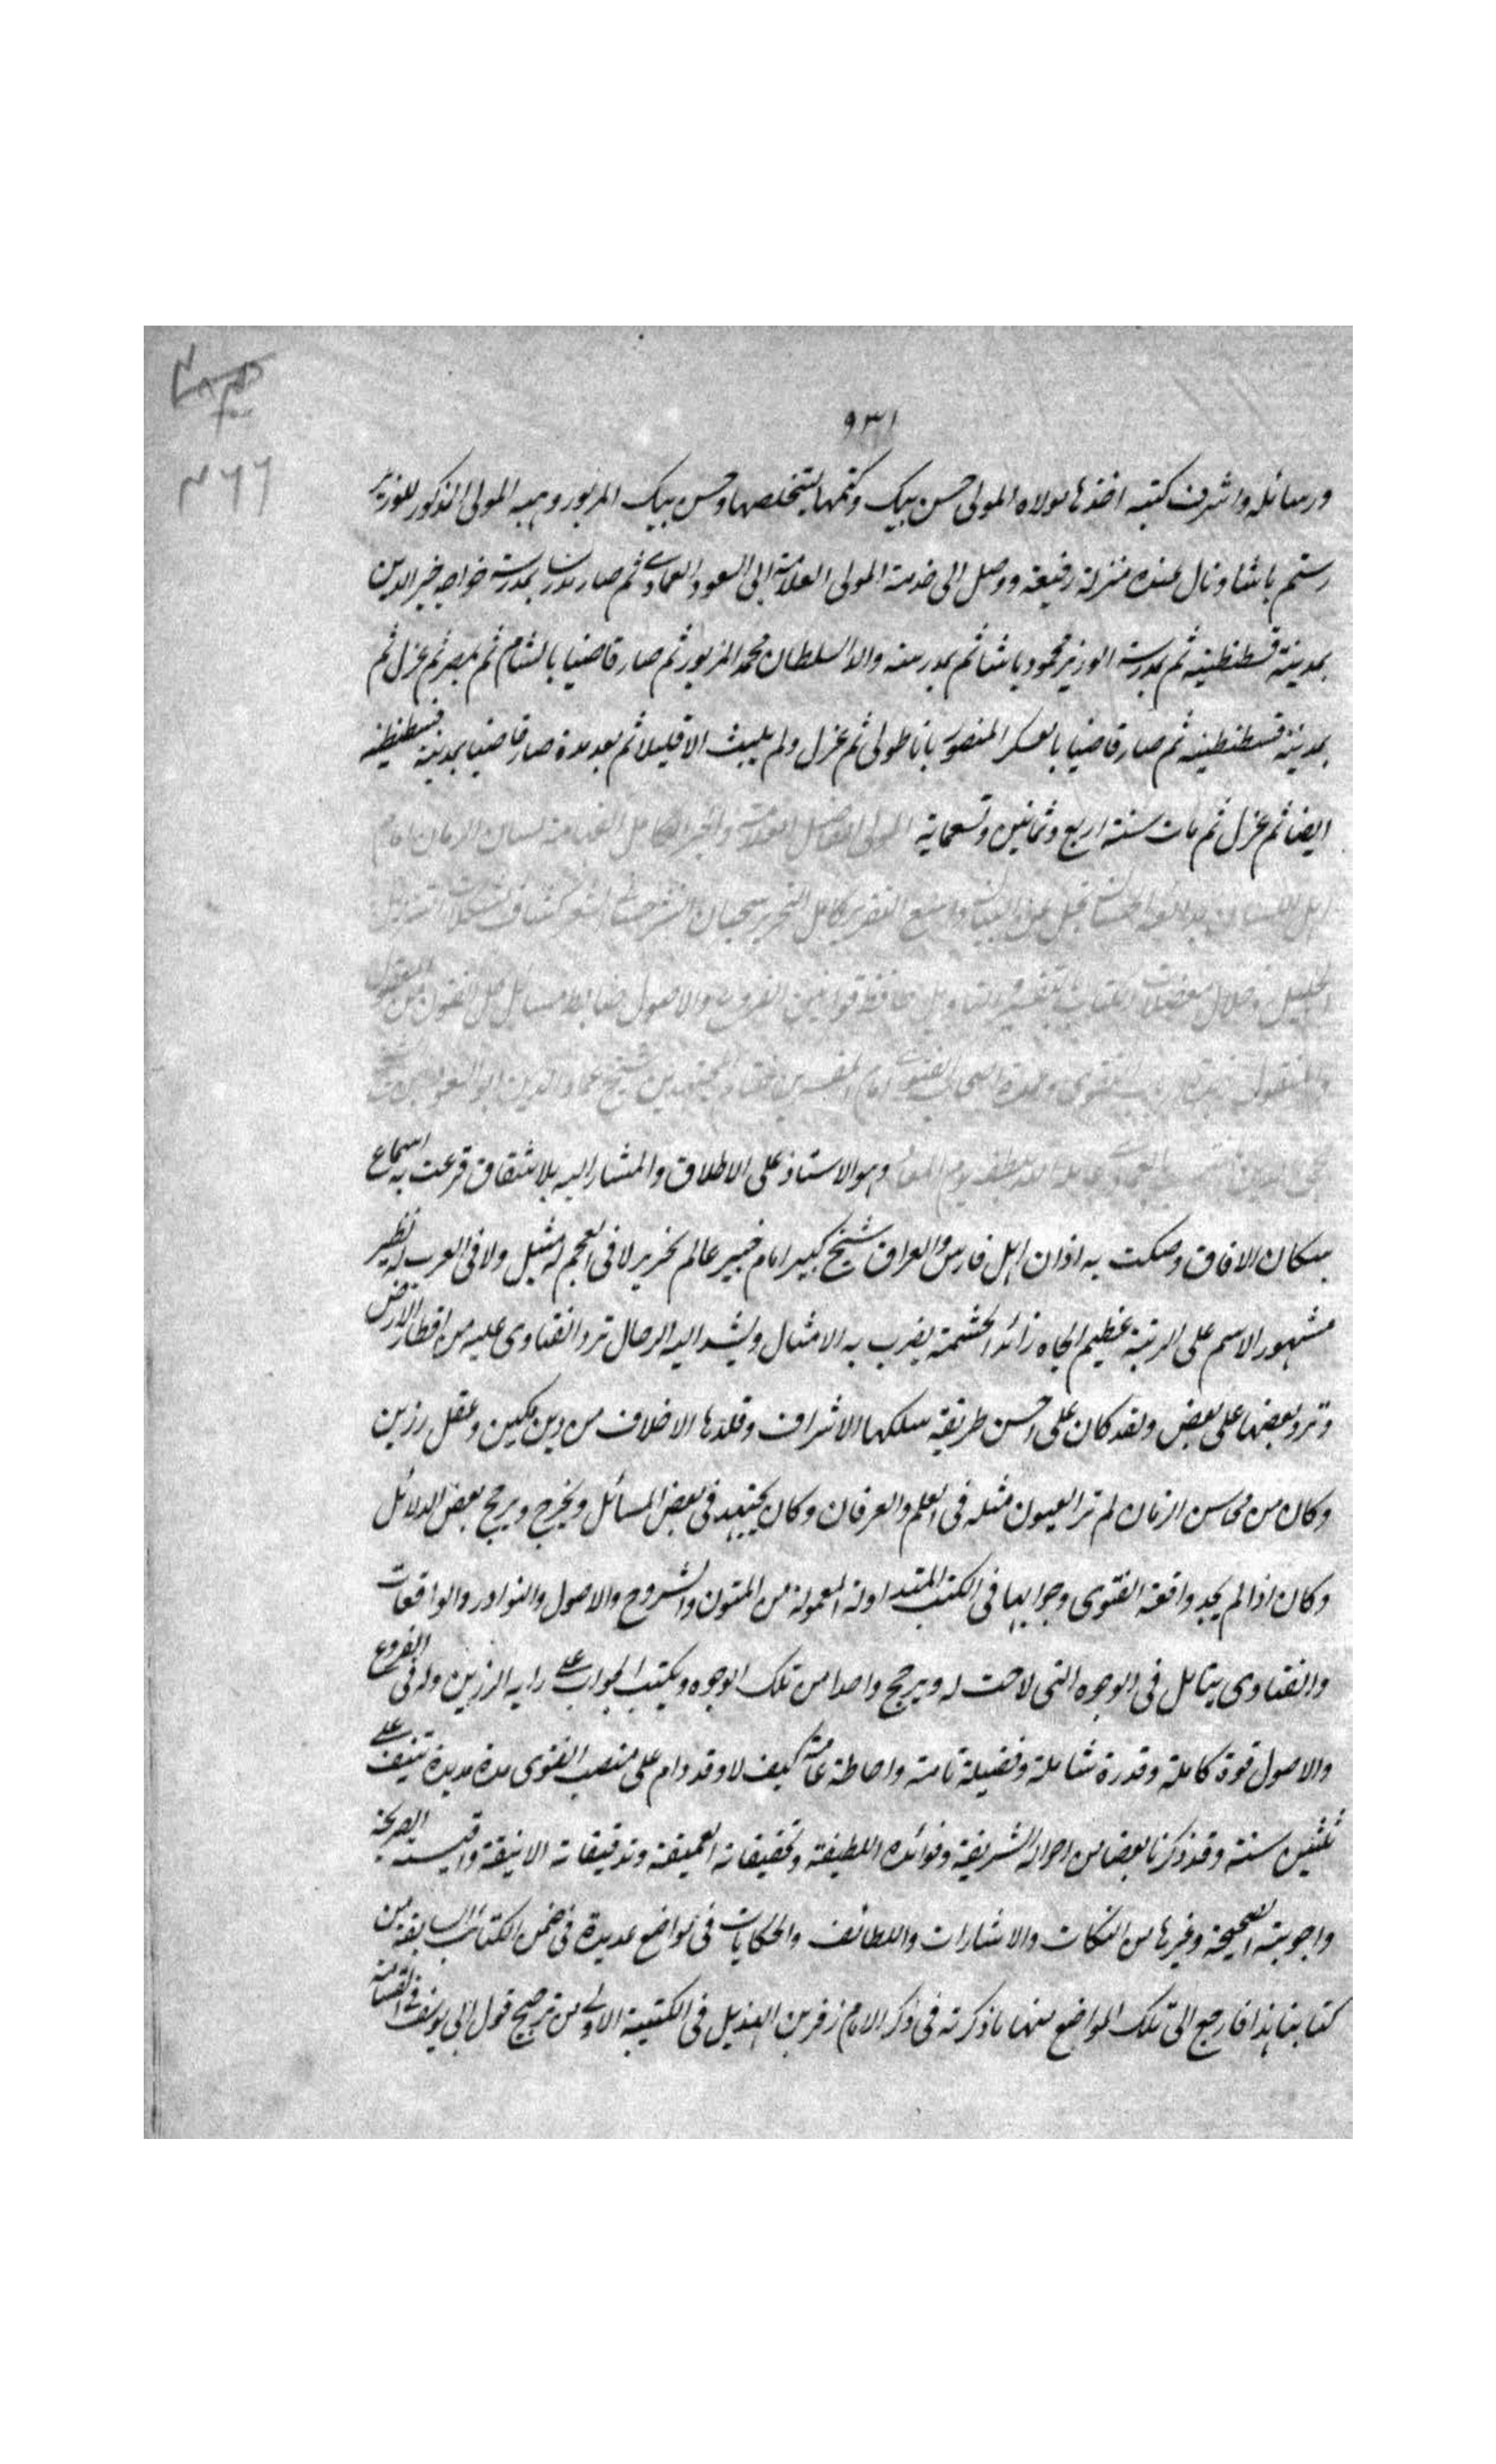 ٩٣١
٤٦٦
ورسائله واشرف كتبه اخذها مولاه المولى حسن بيك وكتمها ليتخلصها وحسن بيك المزبور وهبه المولى المذكور للوزير
رستم باشا ونال عنده منزلة رفيعة ووصل الى خدمة المولى العلامة ابى السعود العمادى ثم صار مدرسا بمدرسة خواجه خير الدين
بمدينة قسطنطينية ثم بمدرسة الوزير محمود باشا ثم بمدرسة والد السلطان محمد المزبور ثم صار قاضيا بالشام ثم بمصر ثم عزل ثم
بمدينة قسطنطينية ثم صار قاضيا بالعسكر المنصور باناطولى ثم عزل ولم يلبث الا قليلا ثم بعد مدة صار قاضيا بمدينة قسطنطينية
ايضا ثم عزل ثم مات سنة اربع وثمانين وتسعماية المولى الفاضل العلامة والحبر الكامل الفهامة لسان الزمان امام
اهل اللسان واسع التقرير كامل التحرير سحبان النثر حسان الشعر كشاف مشكلات التنزيل
الجليل وحلال معضلات الكتاب بالتفسير والتاويل حافظ قوانين الفروع والاصول ضابط مسائل كل الفنون من المعقول
والمنقول الفتوى امام المفسرين ختام المجتهدين شيخ عماد الدين ابو السعود بن
محيى الدين العمادى عامله الله بلطفه يوم وهو الاستاذ على الاطلاق والمشار اليه بلا شقاق قرعت به اسماع
سكان الافاق وصكت به اذان اهل فارس والعراق شيخ كبير امام خبير عالم نحرير لا فى العجم له مثيل ولا فى العرب له نظير
مشهور الاسم على الرتبة عظيم الجاه زائد الحشمة يضرب به الامثال ويشد اليه الرحال ترد الفتاوى عليه من اقطار الارض
وترد بعضها على بعض ولقد كان على احسن طريقة سلكها الاشراف وقلدها الاخلاف من دين مكين وعقل رزين
وكان من محاسن الزمان لم تر العيون مثله فى العلم والعرفان وكان يجتهد فى بعض المسائل ويخرج ويرجح بعض الدلائل
وكان اذا لم يجد واقعة الفتوى وجوابها فى الكتب المتداولة المعمولة من المتون والشروح والاصول والنوادر والواقعات
والفتاوى يتامل فى الوجوه التى لاحت له ويرجح واحدا من تلك الوجوه ويكتب الجواب على رايه الرزين وله فى الفروع
والاصول قوة كاملة وقدرة شاملة وفضيلة تامة واحاطة عامة كيف لا وقد دام على منصب الفتوى مدة مديدة تنيف على
ثلثين سنة وقد ذكرنا بعضا من احواله الشريفة وفوائده اللطيفة وتحقيقاته العميقة وتدقيقاته الانيقة واقيسته الصريحة
واجوبته الصحيحة وغيرها من النكات والاشارات واللطائف والحكايات فى مواضع عديدة فى ضمن الكتائب السابقة من
كتابنا هذا فارجع الى تلك المواضع منها ما ذكرته فى ذكر الامام زفر بن الهذيل فى الكتيبة الاولى من ترجيح قول ابى يوسف فى القسامة